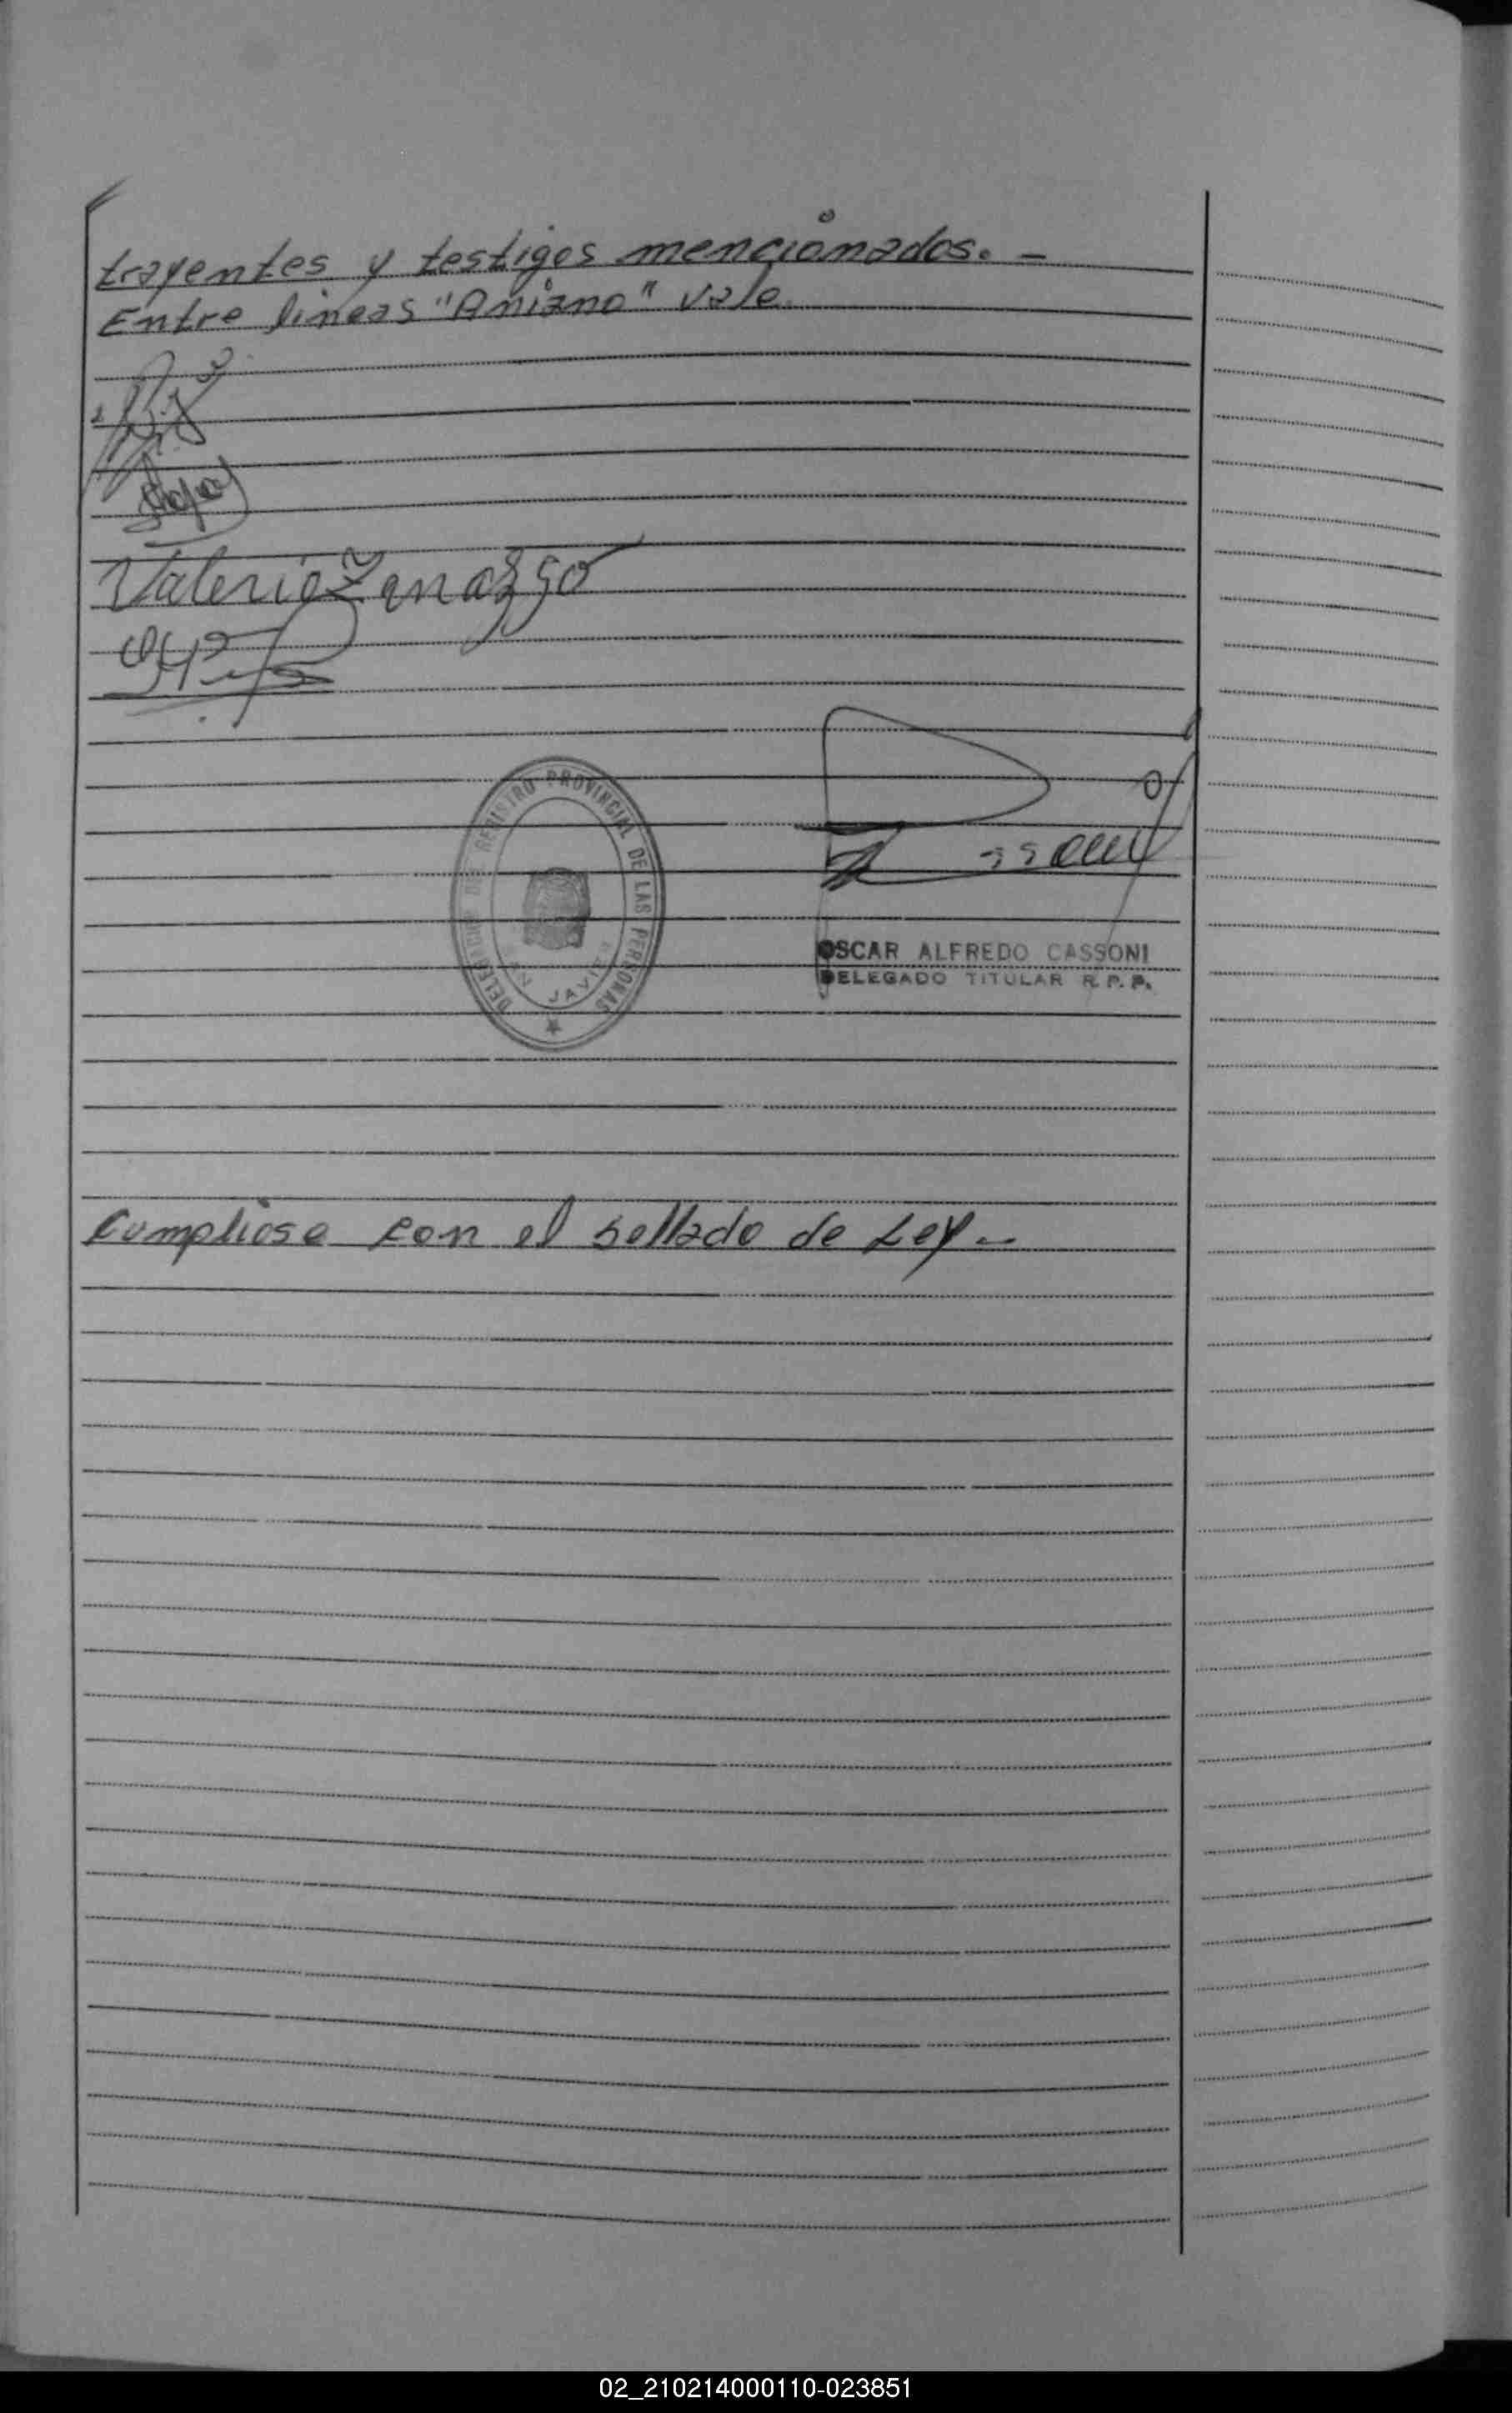 trayentes y testigos mencionados. -
Entre lineas "Aniano" vale.
Valerio
DELEGACION DEL REGISTRO PROVINCIAL DE LAS PERSONAS
SAN JAVIER
OSCAR ALFREDO CASSONI
DELEGADO TITULAR R.P.P.
Cumpliose con el sellado de Ley -
02_210214000110-023851